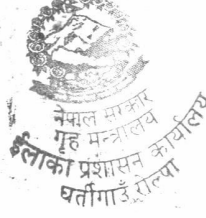 नेपाल सरकार
गृह मन्त्रालय
ईलाका प्रशासन कार्यालय
घर्तीगाउँ, रोल्पा